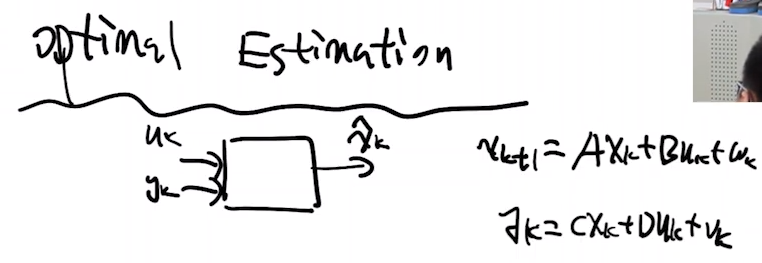 Optimal Estimation
u_k
y_k
x̂_k
x_{k+1} = Ax_k + Bu_k + w_k
y_k = Cx_k + Du_k + v_k